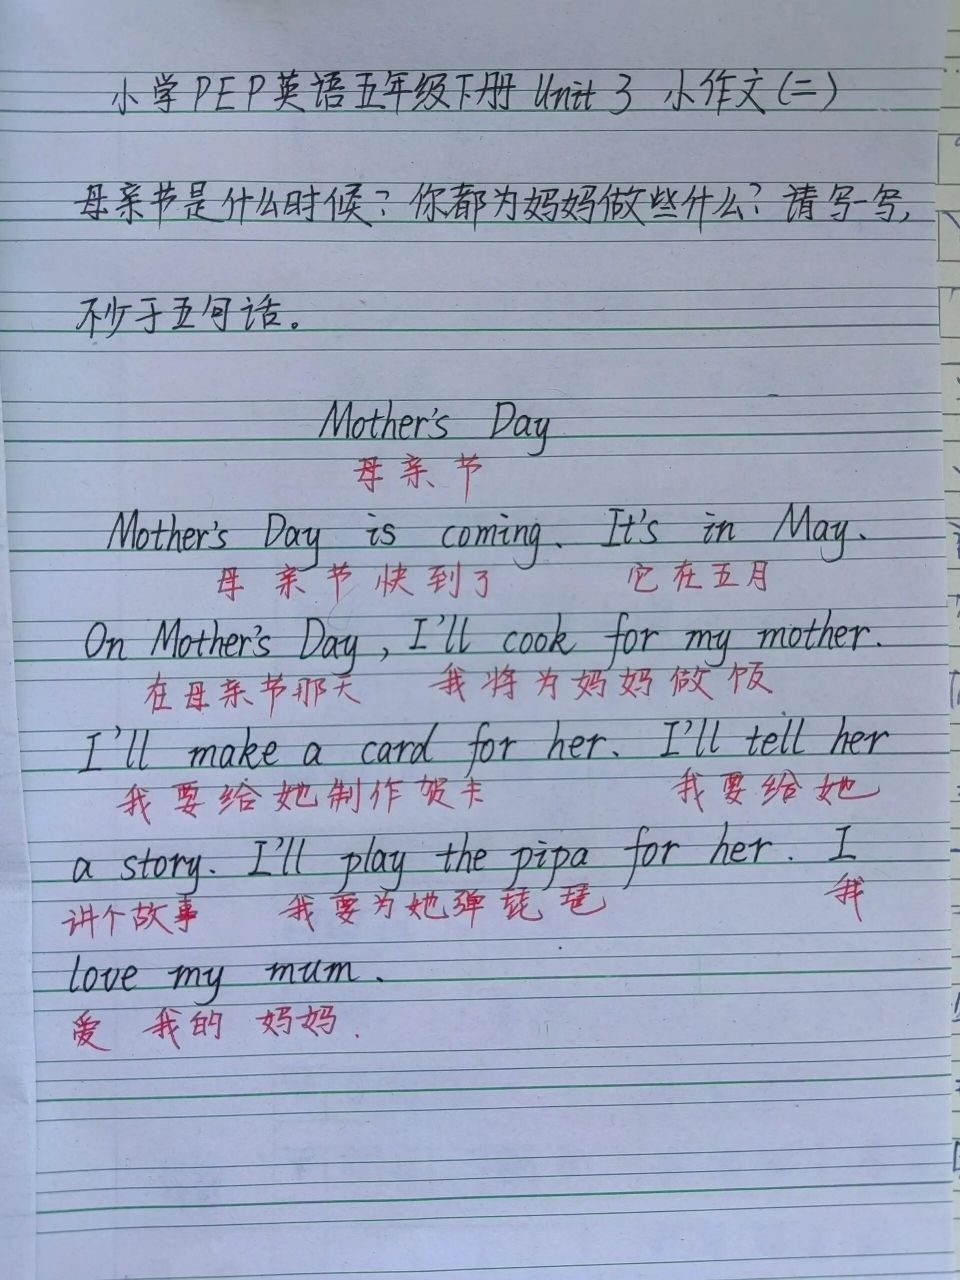 小学PEP英语五年级下册 Unit 3 小作文(二)
母亲节是什么时候?你都为妈妈做些什么?请写一写,
不少于五句话。
Mother's Day
母亲节
Mother's Day is coming. It's in May.
母亲节快到了 它在五月
On Mother's Day, I'll cook for my mother.
在母亲节那天 我将为妈妈做饭
I'll make a card for her. I'll tell her
我要给她制作贺卡 我要给她
a story. I'll play the pipa for her. I
讲个故事 我要为她弹琵琶 我
love my mum.
爱 我的 妈妈.